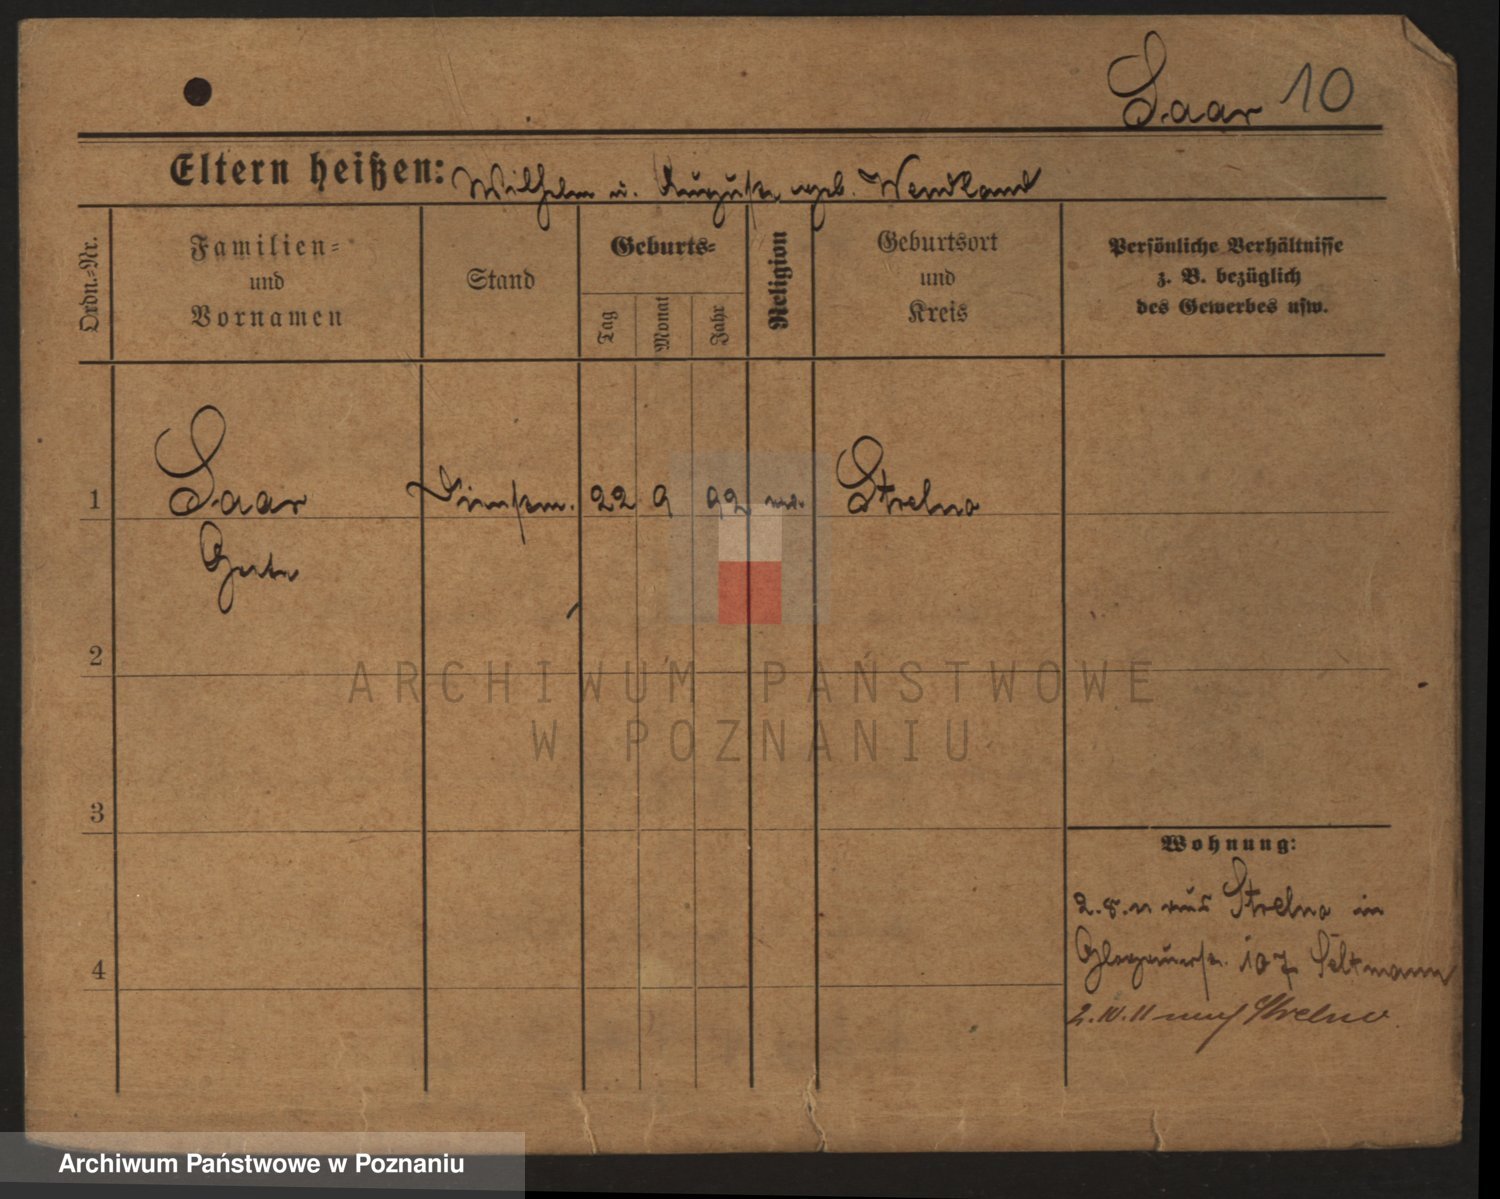 Saar 10
Eltern heißen: Wilhelm u. Auguste geb. Wendland
Ordn.-Nr.
Familien- und Vornamen
Stand
Geburts-
Tag
Monat
Jahr
Religion
Geburtsort und Kreis
Persönliche Verhältnisse
z. B. bezüglich
des Gewerbes usw.
1 Saar 22 9 92 Strelno
2
ARCHIWUM PAŃSTWOWE
W POZNANIU
3
Wohnung:
2.8.11 aus Strelno in
107 Seltmann
4
2.10.11 nach Strelno.
Archiwum Państwowe w Poznaniu